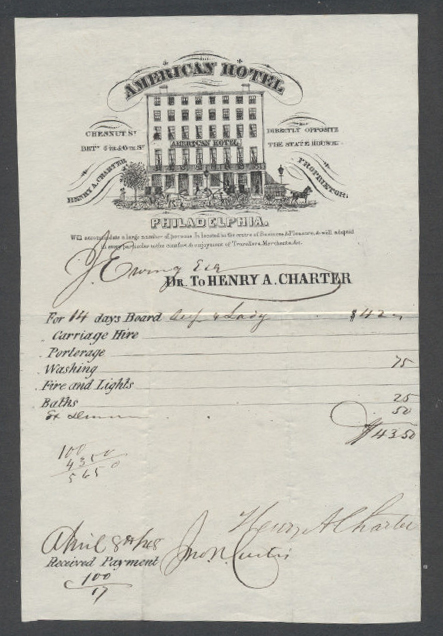 AMERICAN HOTEL
CHESNUT St
BETn 5th & 6th St
HENRY A. CHARTER
DIRECTLY OPPOSITE
THE STATE HOUSE
PROPRIETOR.
AMERICAN HOTEL
PHILADELPHIA.
Will accommodate a large number of persons Is located in the centre of Business & Pleasure, & well adapted
in every particular to the comfort & enjoyment of Travellers, Merchants, &c.
J. Ewing Esq
DR. To HENRY A. CHARTER
For 14 days Board Self & Lady $42
Carriage Hire
Porterage
Washing 75
Fire and Lights
Baths 25
Ex 50
$43.50
100
43 50
56 50
April 8th/48
Henry A Charter
Recieved Payment
Jno. N. Curtis
100
17